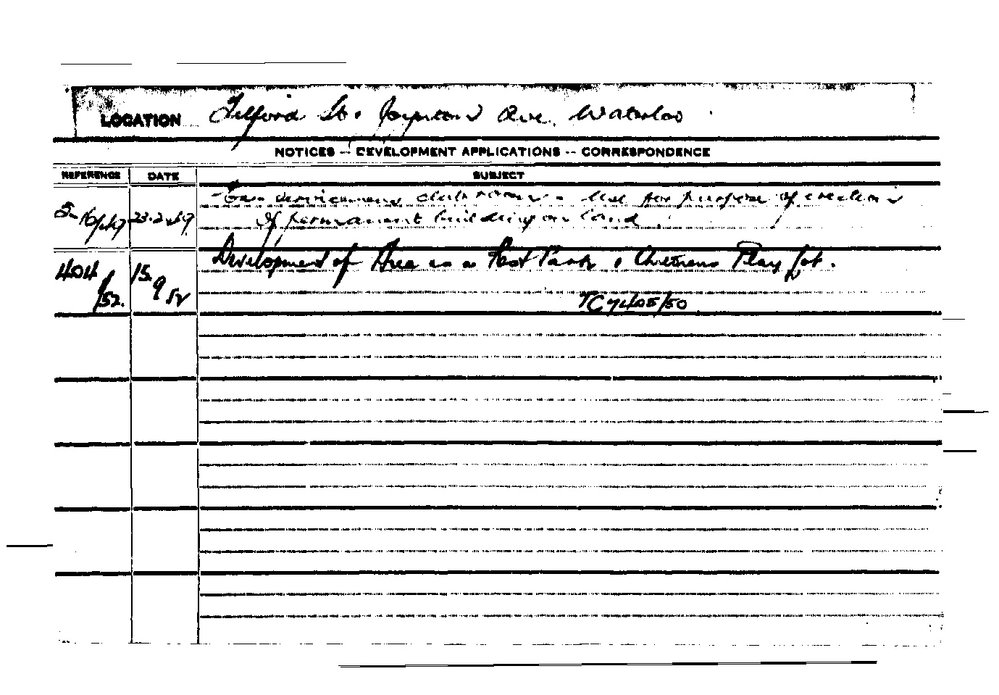 LOCATION Telford St. Joynton Ave. Waterloo
NOTICES -- DEVELOPMENT APPLICATIONS -- CORRESPONDENCE
REFERENCE DATE SUBJECT
23.2.49 Ex-servicemens club rooms - Use for purpose of erection
of permanent building on land
404/52. 15.9.52 Development of Area as a Rest Park & Childrens Play Lot.
TC 7405/50